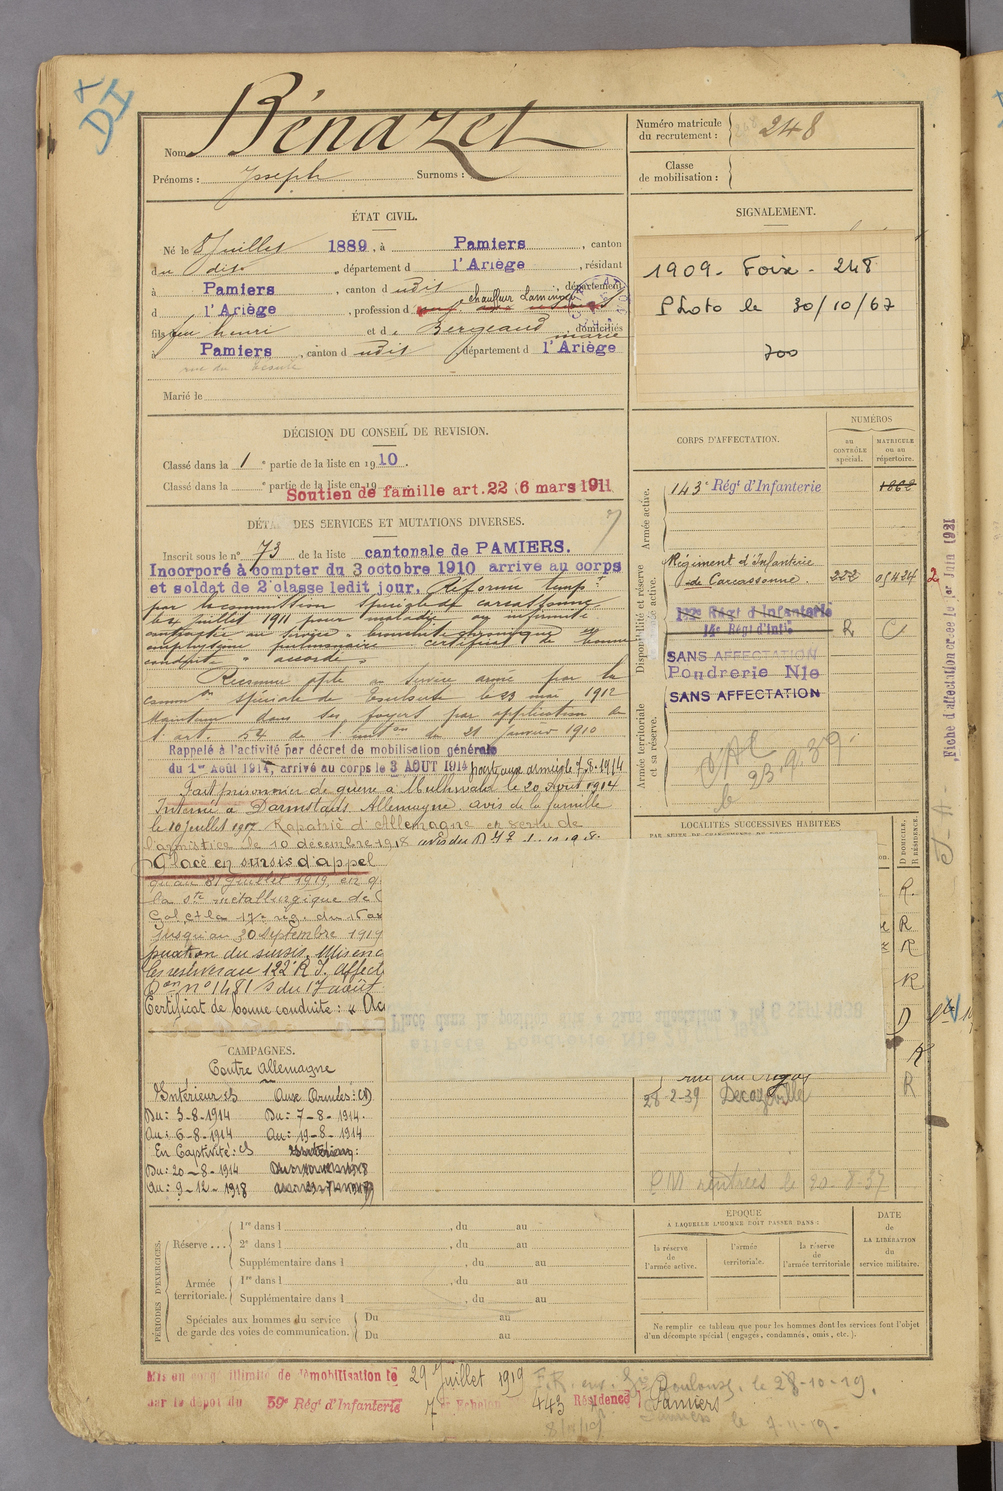 DI
Nom Bénazet
Prénoms : Joseph Surnoms :
Numéro matricule du recrutement : 248
Classe de mobilisation :
ÉTAT CIVIL.
Né le 8 Juillet 1889, à Pamiers, canton
du dit, département d l'Ariège, résidant
à Pamiers, canton d udit, département
d l'Ariège, profession d chauffeur Laminage
fils feu henri et de Bergeaud marie, domiciliés
à Pamiers, canton d udit, département d l'Ariège
rue du
Marié le
SIGNALEMENT.
1909 - Foix - 248
Photo le 30/10/67
700
DÉCISION DU CONSEIL DE REVISION.
Classé dans la 1e partie de la liste en 1910.
Classé dans la e partie de la liste en 19
Soutien de famille art. 22 (6 mars 1911
DÉTA DES SERVICES ET MUTATIONS DIVERSES.
Inscrit sous le n° 73 de la liste cantonale de PAMIERS.
Incorporé à compter du 3 octobre 1910 arrive au corps
et soldat de 2e classe ledit jour. Réformé temp.re
par la commission spéciale de carcassonne
le 4 juillet 1911 pour maladie ou infirmité
contractée au service " bronchite chronique et
emphysème pulmonaire certificat de bonne
conduite " accordé "
Reconnu apte au service armé par la
comm.on spéciale de Toulouse le 23 mai 1912
Maintenu dans ses foyers par application de
l'art. 54 de l'inst.on du 21 janvier 1910
Rappelé à l'activité par décret de mobilisation générale
du 1er Août 1914, arrivé au corps le 3 AOUT 1914 parti aux armées le 7.8.1914
Fait prisonnier de guerre à Mulhwald le 20 Août 1914
Interné à Darmstadt Allemagne avis de la famille
le 10 juillet 1917 Rapatrié d'Allemagne en vertu de
l'armistice le 10 décembre 1918
Placé en sursis d'appel
qu'au 31 Juillet 1919, en q
la Sté métallurgique de
Jusqu'au 30 Septembre 1919
les réserves au 122e R I. affect
on n° 1481 du 17 août
Certificat de bonne conduite : " Ac
CORPS D'AFFECTATION.
NUMÉROS
au CONTRÔLE spécial.
MATRICULE ou au répertoire.
Armée active.
143e Régt d'Infanterie 1868
Disponibilité et réserve de l'armée active.
Régiment d'Infanterie
de Carcassonne. 222 05424
122e Régt d'Infanterie
14e Régt d'Inf.ie
SANS AFFECTATION
Poudrerie Nle
SANS AFFECTATION
Armée territoriale et sa réserve.
le 23.9.39
Fiche d'affectation créée le 1er Juin 1921
LOCALITÉS SUCCESSIVES HABITÉES
D DOMICILE, R RÉSIDENCE.
R
R
R
R
D
R
R
28-2-39 Decazeville
rentrées le 20-8-37
CAMPAGNES.
Contre Allemagne
Intérieur Aux Armées: (D)
Du: 3-8-1914 Du: 7-8-1914.
Au: 6-8-1914 Au: 19-8-1914
En Captivité: Intérieur:
Du: 20-8-1914
Au: 9-12-1918
PÉRIODES D'EXERCICES.
Réserve ...
1re dans l , du au
2e dans l , du au
Supplémentaire dans l , du au
Armée territoriale.
1re dans l , du au
Supplémentaire dans l , du au
Spéciales aux hommes du service de garde des voies de communication.
Du au
Du au
ÉPOQUE
A LAQUELLE L'HOMME DOIT PASSER DANS :
la réserve de l'armée active.
l'armée territoriale.
la réserve de l'armée territoriale
DATE de LA LIBÉRATION du service militaire.
Ne remplir ce tableau que pour les hommes dont les services font l'objet
d'un décompte spécial (engagés, condamnés, omis, etc.).
Mis en congé illimité de démobilisation le 29 Juillet 1919
par le dépôt du 59e Régt d'Infanterie 7e Echelon 443 Résidence Pamiers
Toulouse, le 28-10-19.
le 7-11-19.